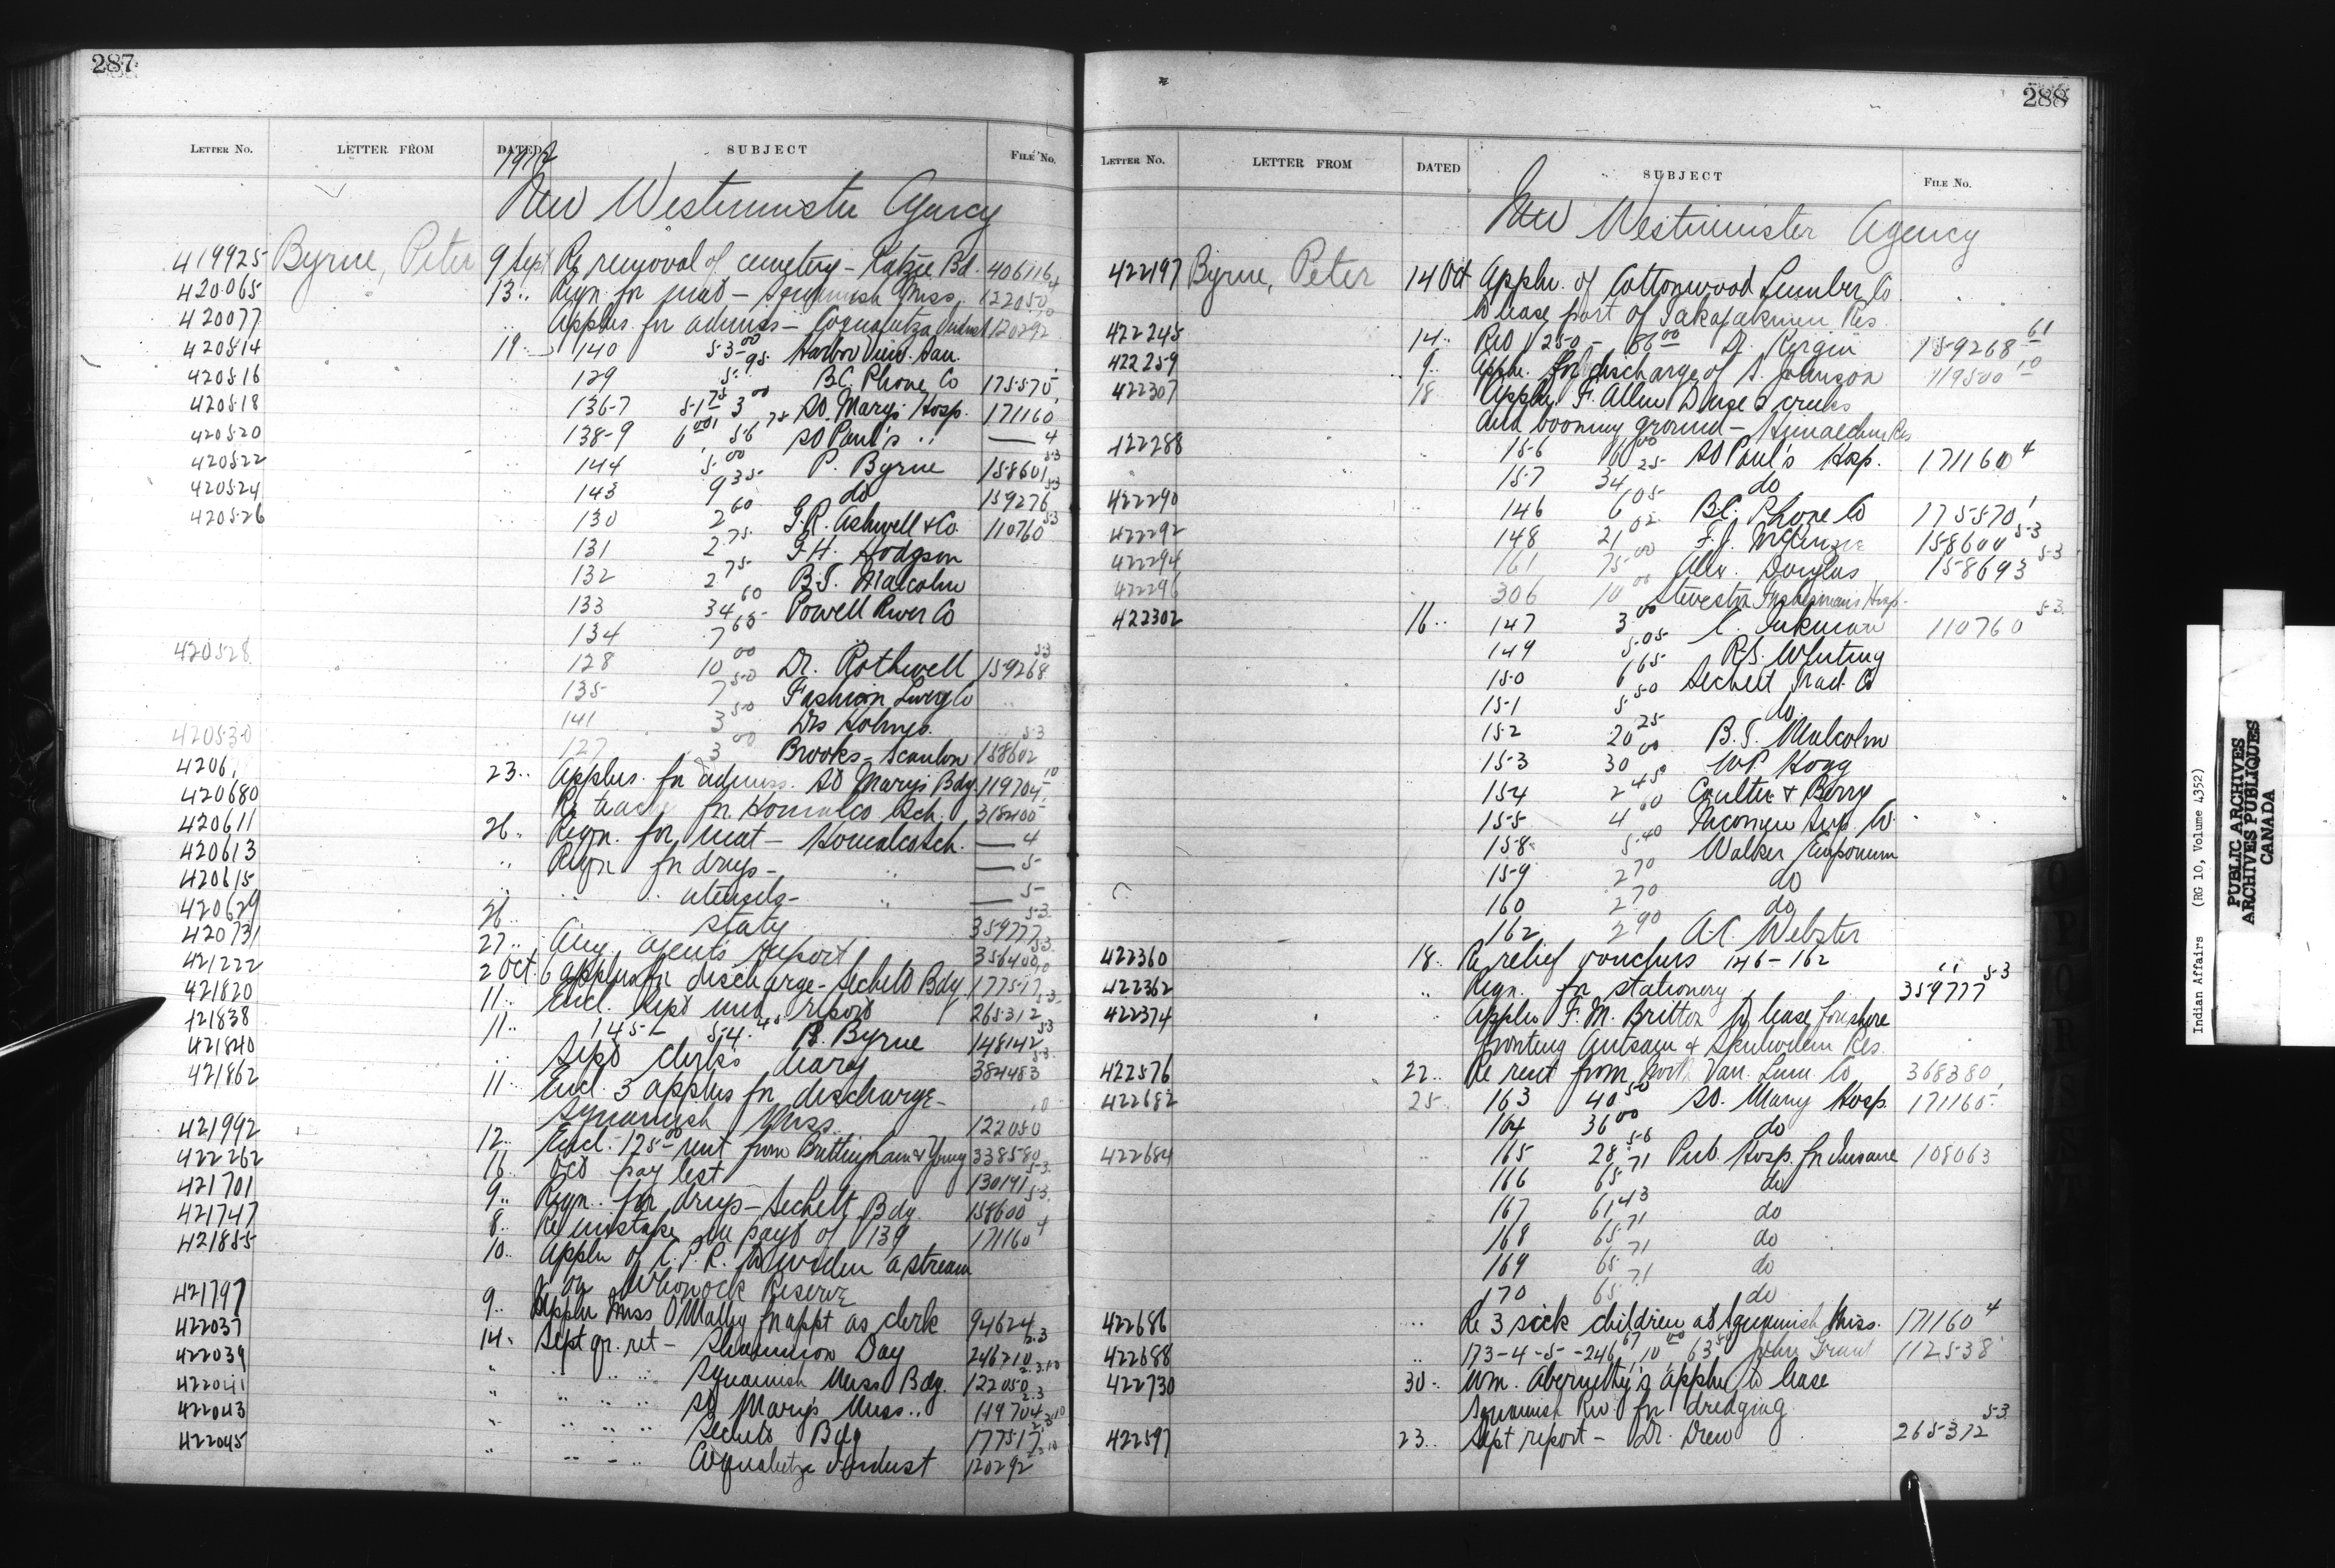 287
LETTER NO. LETTER FROM DATED SUBJECT FILE No.
1912
New Westminster Agency
419925 Byrne, Peter 9 Sept Re removal of cemetery - Katzie Bd. 406116
420065 13 .. Reqn for mat - Squamish Miss. 122050
420077 .. Applns. for admiss - Coqualeetza Indust 120292
420514 19 .. 140 53.00 Harbor View San.
420516 129 5.95 B.C. Phone Co 175570
420518 136-7 51.75 3.00 St. Mary's Hosp. 171160
420520 138-9 St Paul's .. — 4
420522 144 5.00 P. Byrne 158601 53
420524 143 9.35 do 159276 53
420526 130 2.60 G.R. Ashwell & Co. 110760 53
131 2.75 G.H. Hodgson
132 2.75 B.T. Malcolm
133 34.60 Powell River Co
134 7.65
420528 128 10.00 Dr. Rothwell 159268 53
135 7.50 Fashion Livery Co
141 3.50 Drs Holmes.
420530 127 3.00 Brooks - Scanlon 158602 53
4206 23 .. Applns. for admiss. St Mary's Bdg. 119704 10
420680 Re teacher for Homalco Sch. 318400
420611 26 .. Reqn. for mat - Homalco Sch. — 4
420613 .. Reqn for drugs - .. — 5
420615 .. .. .. utensils - .. — 5
420629 26 .. staty 359777 53
420731 27 .. Aug. agent's report 356400 53
421222 2 Oct. 6 applns for discharge - Sechelt Bdg 177517 10
421820 11 .. Encl. Sept med. report 265312 53
421838 11 .. 145 - 54.45 P. Byrne 148142 53
421840 .. Sept clerk's diary 384483 53
421862 11 .. Encl. 3 applns for discharge -
Squamish Miss. 122050 10
421992 12 .. Encl. 175.00 rent from Brettingham & Young 338580
422262 16 .. Oct pay list 130141 53
421701 9 .. Reqn. for drugs - Sechelt Bdg. 158600 53
421747 8 .. Re mistake in payt of 139 171160 4
421855 10 .. Appln of C.P.R. to widen a stream
on Whonock Reserve
421797 9 .. Appln Miss O'Malley for appt as clerk 94624
422037 14 .. Sept qr. ret - Shammon Day 246210 2.3
422039 .. .. .. .. Squamish Miss Bdg. 122050 2.3.10
422041 .. .. .. .. St Mary's Miss .. 119704 2.3
422043 .. .. .. .. Sechelt Bdg 177517 2.3.10
422045 .. .. .. .. Coqualeetza Indust 120292 2.10
288
LETTER NO. LETTER FROM DATED SUBJECT FILE No.
New Westminster Agency
422197 Byrne, Peter 14 Oct Appln. of Cottonwood Lumber Co
to lease part of Res.
422245 14 .. Rcd 1250 - 86.00 Dr. Kergin 159268 61
422259 9 .. Appln. for discharge of S. Johnson 119500 10
422307 18 Appln. F. Allen to use 2 creeks
and booming ground - Res
422288 156 16.00 St Paul's Hosp. 171160 4
157 34.25 do
422290 146 6.05 B.C. Phone Co 175570
422292 148 21.02 F.J. McKenzie 158600 53
422294 161 75.00 Alex. Douglas 158693 53
422296 306 10.00 Steveston Fishermen's Hosp.
422302 16 .. 147 3.00 C. Inkman 110760 53
149 5.05 R.S. Whiting
150 6.65 Sechelt Trad. Co
151 5.50 do
152 20.25 B.T. Malcolm
153 30.00 W.P. Hogg
154 2.45 Coulter & Berry
155 4.60 Nicomen Sup. Co.
158 5.40 Walker Emporium
159 2.70 do
160 2.70 do
162 2.90 A.C. Webster
422360 18 .. Re relief vouchers 146 - 162 ..
422362 .. Reqn. for stationery 359777 53
422374 Appln F.M. Britton to lease foreshore
fronting & Res.
422576 22 .. Re rent from North Van. Lum. Co 368380
422682 25 .. 163 40.50 St. Mary Hosp. 171165
164 36.00 do
422684 165 28.56 Pub. Hosp. for Insane 108063
166 65.71 do
167 61.43 do
168 65.71 do
169 65.71 do
170 65.71 do
422686 .. Re 3 sick children at Squamish Miss. 171160 4
422688 .. 173-4-5 - 246.67, 10.00, 63.50 John Grant 112538
422730 30 .. Wm. Abernethy's appln to lease
Squamish Riv. for dredging
422597 23 .. Sept report - Dr. Drew 265312 53
Indian Affairs (RG 10, Volume 4352)
PUBLIC ARCHIVES
ARCHIVES PUBLIQUES
CANADA